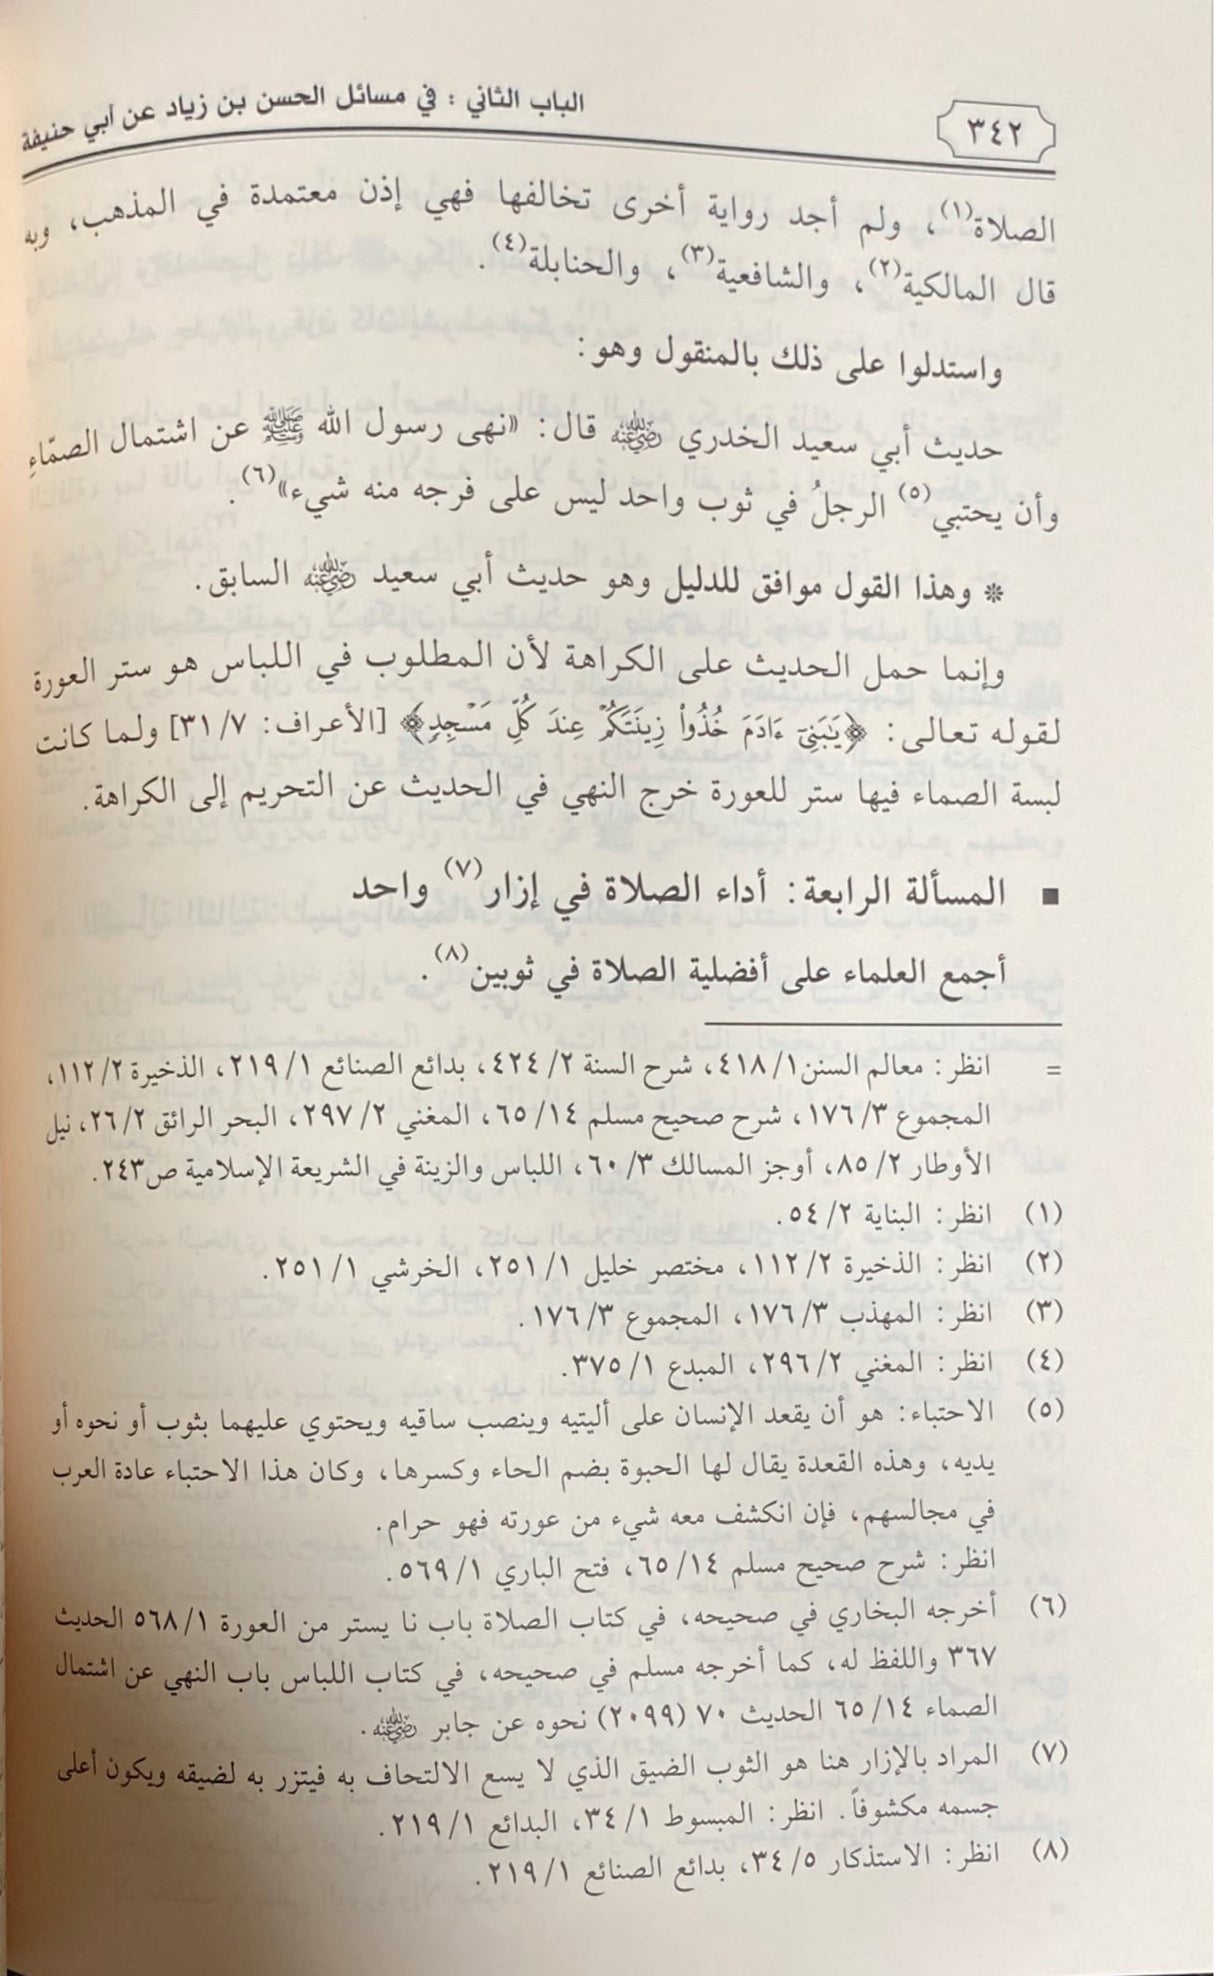 ٣٤٢
الباب الثاني : في مسائل الحسن بن زياد عن أبي حنيفة
الصلاة(١)، ولم أجد رواية أخرى تخالفها فهي إذن معتمدة في المذهب، وبه
قال المالكية(٢)، والشافعية(٣)، والحنابلة(٤).
واستدلوا على ذلك بالمنقول وهو:
حديث أبي سعيد الخدري رضي الله عنه قال: «نهى رسول الله ﷺ عن اشتمال الصمّاءِ
وأن يحتبي(٥) الرجلُ في ثوب واحد ليس على فرجه منه شيء»(٦).
* وهذا القول موافق للدليل وهو حديث أبي سعيد رضي الله عنه السابق.
وإنما حمل الحديث على الكراهة لأن المطلوب في اللباس هو ستر العورة
لقوله تعالى: ﴿يَبَنِىٓ ءَادَمَ خُذُوا۟ زِينَتَكُمْ عِندَ كُلِّ مَسْجِدٍ﴾ [الأعراف: ٣١/٧] ولما كانت
لبسة الصماء فيها ستر للعورة خرج النهي في الحديث عن التحريم إلى الكراهة.
■ المسألة الرابعة: أداء الصلاة في إزار(٧) واحد
أجمع العلماء على أفضلية الصلاة في ثوبين(٨).
= انظر: معالم السنن ٤١٨/١، شرح السنة ٤٢٤/٢، بدائع الصنائع ٢١٩/١، الذخيرة ١١٢/٢،
المجموع ١٧٦/٣، شرح صحيح مسلم ٦٥/١٤، المغني ٢٩٧/٢، البحر الرائق ٢٦/٢، نيل
الأوطار ٨٥/٢، أوجز المسالك ٦٠/٣، اللباس والزينة في الشريعة الإسلامية ص٢٤٣.
(١) انظر: البناية ٥٤/٢.
(٢) انظر: الذخيرة ١١٢/٢، مختصر خليل ٢٥١/١، الخرشي ٢٥١/١.
(٣) انظر: المهذب ١٧٦/٣، المجموع ١٧٦/٣.
(٤) انظر: المغني ٢٩٦/٢، المبدع ٣٧٥/١.
(٥) الاحتباء: هو أن يقعد الإنسان على أليتيه وينصب ساقيه ويحتوي عليهما بثوب أو نحوه أو
يديه، وهذه القعدة يقال لها الحبوة بضم الحاء وكسرها، وكان هذا الاحتباء عادة العرب
في مجالسهم، فإن انكشف معه شيء من عورته فهو حرام.
انظر: شرح صحيح مسلم ٦٥/١٤، فتح الباري ٥٦٩/١.
(٦) أخرجه البخاري في صحيحه، في كتاب الصلاة باب نا يستر من العورة ٥٦٨/١ الحديث
٣٦٧ واللفظ له، كما أخرجه مسلم في صحيحه، في كتاب اللباس باب النهي عن اشتمال
الصماء ٦٥/١٤ الحديث ٧٠ (٢٠٩٩) نحوه عن جابر رضي الله عنه.
(٧) المراد بالإزار هنا هو الثوب الضيق الذي لا يسع الالتحاف به فيتزر به لضيقه ويكون أعلى
جسمه مكشوفاً. انظر: المبسوط ٣٤/١، البدائع ٢١٩/١.
(٨) انظر: الاستذكار ٣٤/٥، بدائع الصنائع ٢١٩/١.